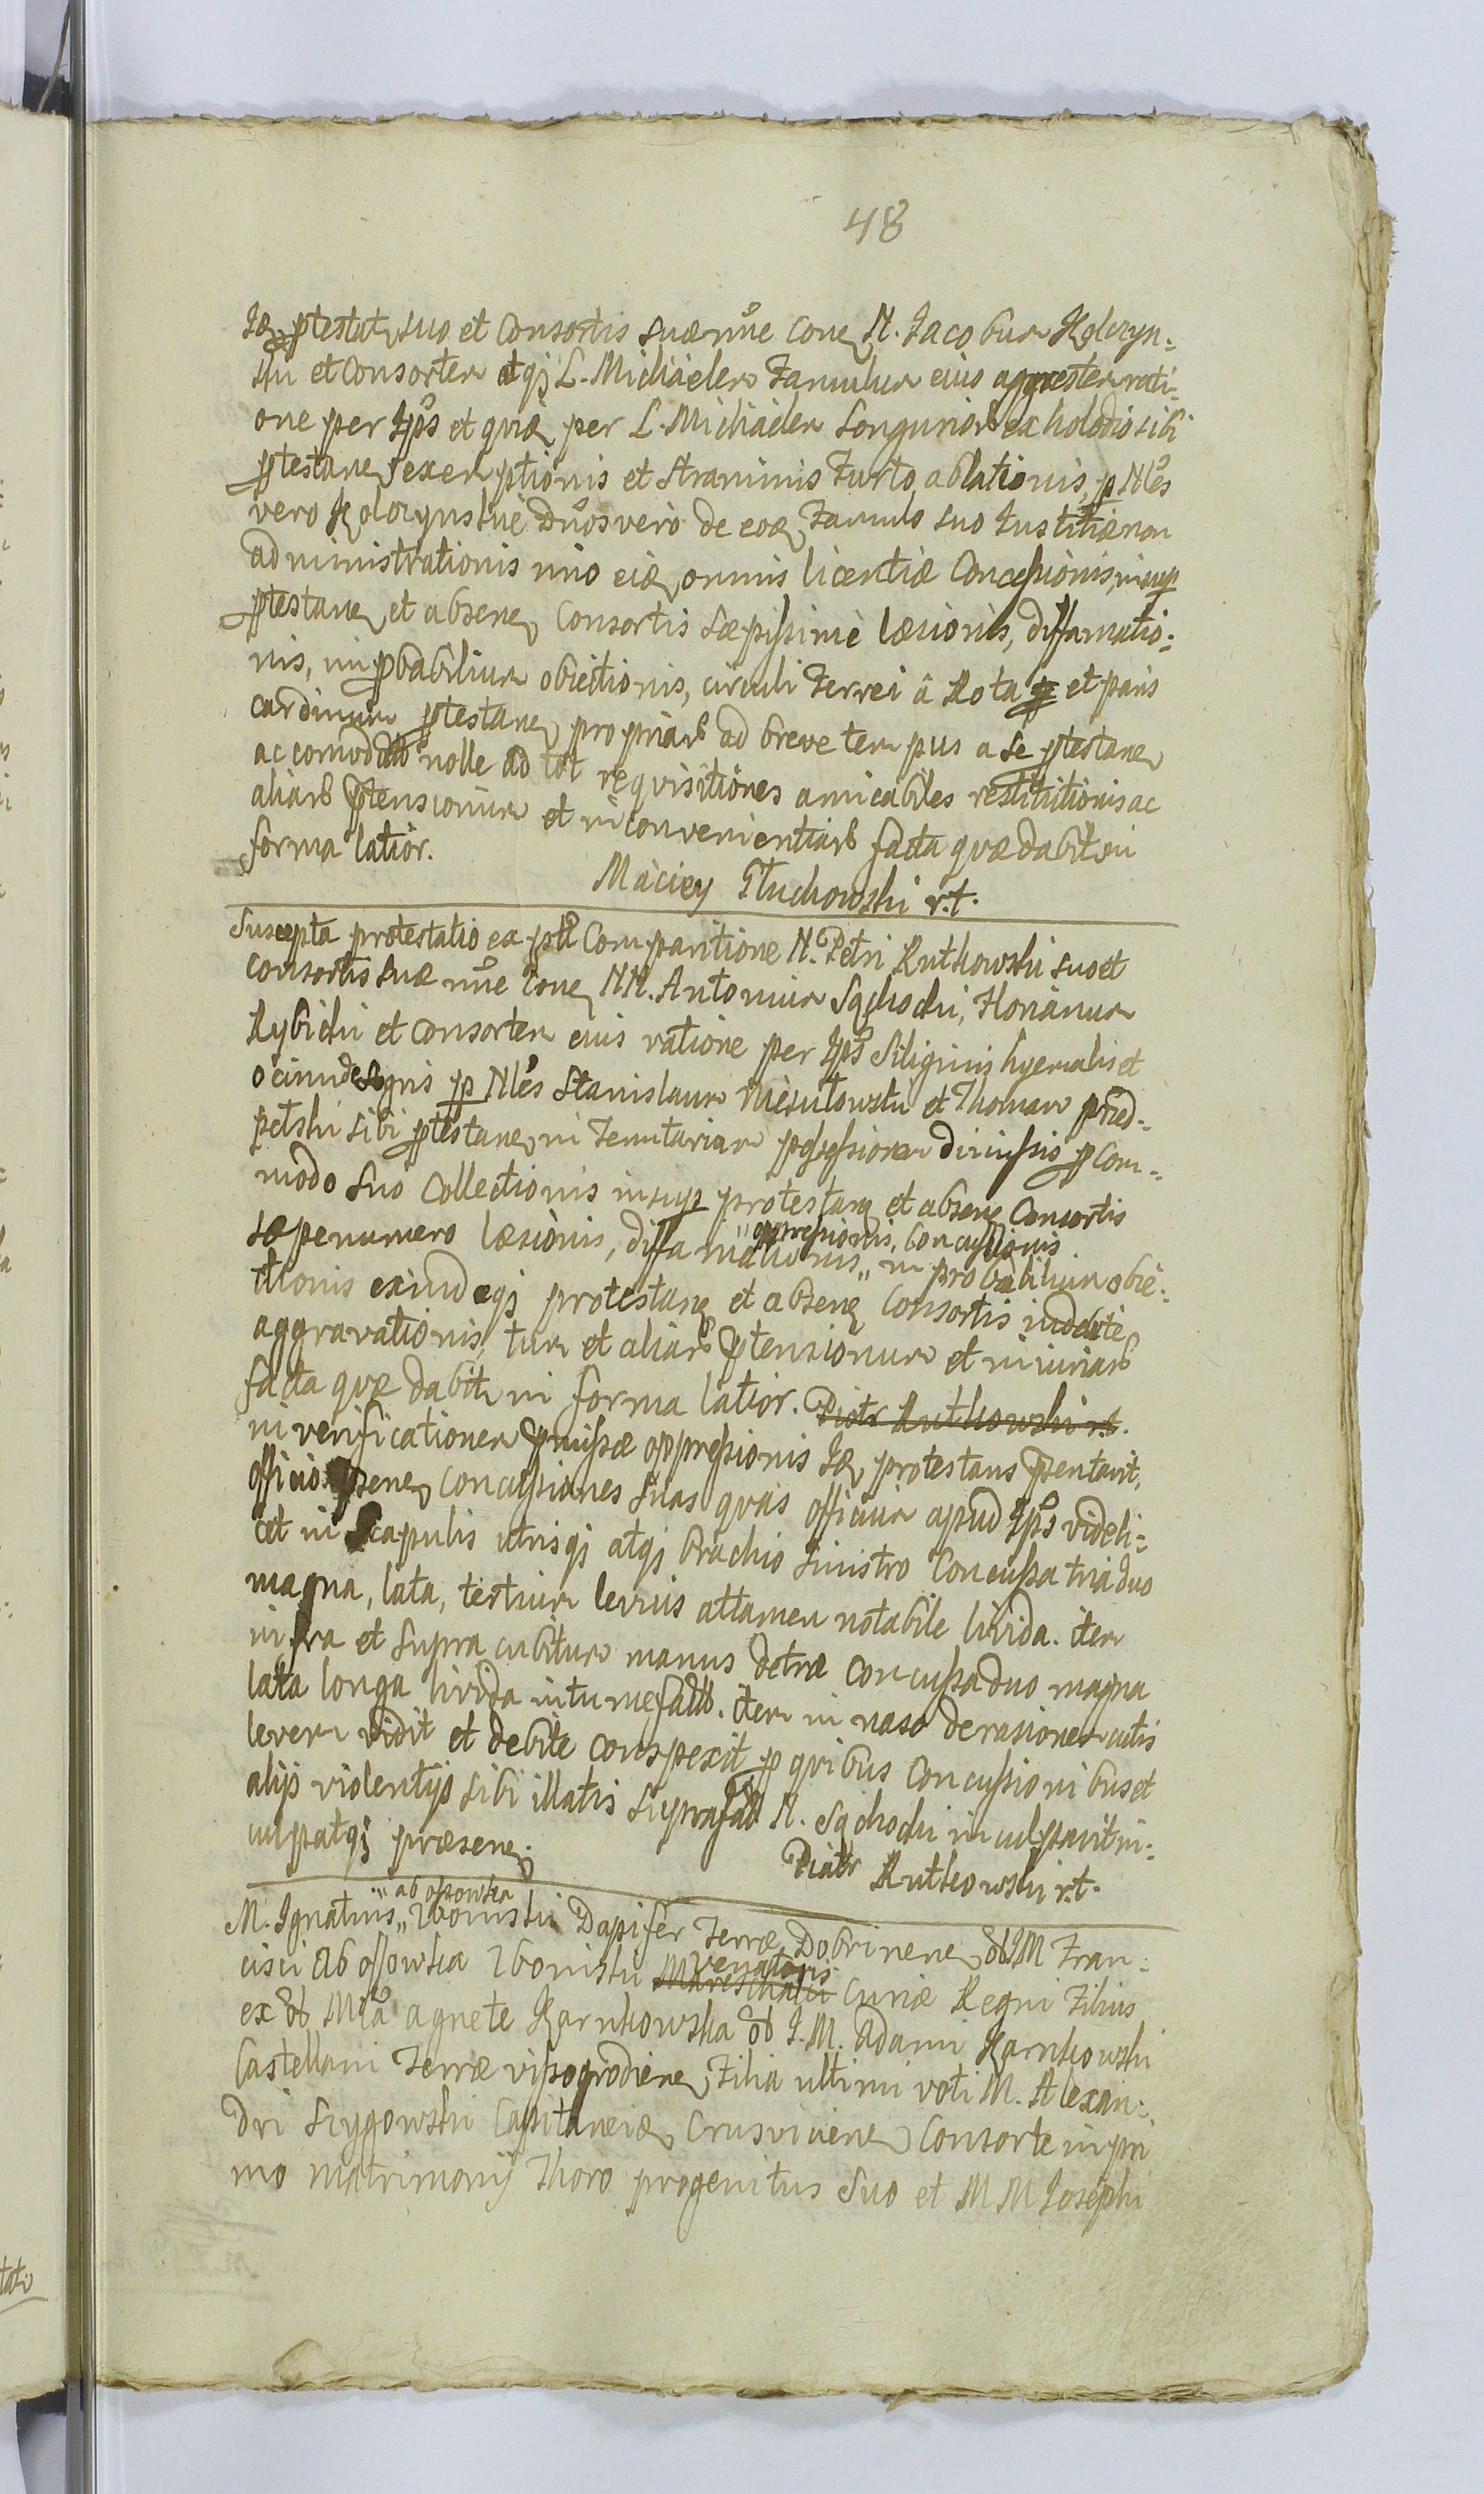 48
Idem ptestatr suo et Consortis suæ nne cone N. Jacobum Kolczyn-
ski et Consortem atq; L. Michaelem Famulum eius agrestem rati-
one per Ipsos et quid. per L. Michaelem Longuriorum ex holodio sibi
ptestane exemptionis et straminis Furto ablationis, p Nles
vero Kolczynskie Dnos vero de eod. Famulo suo Justitiæ non
administrationis imo eid. omnis licentiæ Concessionis, insup
ptestane et absene Consortis sæpissime læsionis, diffamatio-
nis, improbabilium obiectionis, circuli Ferrei â Rota et paris
cardinum ptestane propriarum ad breve tempus a se ptestane
accomodatorum nolle ad tot requisitiones amicabiles restitutionis ac
aliarum ptensionum et inconvenientiarum facta quæ dabitur in
forma latior.
Maciey Głuchowski r.t.
Suscepta protestatio ex psli Comparitione N. Petri Rutkowski suo et
Consortis suæ nne cone NN. Antonium Sąchocki, Florianum
Rybicki et Consortem eius ratione per Ipsos Siliginis hyemalis et
ocinude agris p Nles Stanislaum Niesułowski et Thomam
petski sibi ptestane in Tenutariam possessionem dimissio p Com-
modo suo Collectionis insup protestane et absene Consortis
"oppressionis, Concussionis
sæpenumero læsionis, diffamationis" improbabilium obie-
ctionis exindeq; protestane et absene Consortis indebite
aggravationis, tum et aliarum ptensionum et iniuriarum
facta quæ dabitr in forma latior. Piotr Rutkowski r.t.
in verificationem pmissæ oppressionis Idem protestans psentavit,
officio psene concussiones suas quas officium apud Ipsos videli-
cet in scapulis utrisq; atq; brachio sinistro Concussa tria duo
magna, lata, tertium levius attamen notabile livida. item
infra et supra cubitum manus detræ Concussa duo magna
lata longa livida intumefacta. item in naso derasionem cutis
levem vidit et debite conspexit p quibus Concussionibus et
alijs violentijs sibi illatis suprafatum N. Sąchocki inculpavit in-
culpatq; præsene.
Piotr Rutkowski r.t.
"ab ossowka
M. Ignatius" Zboinski Dapifer Terræ Dobrinene olim IM Fran-
cisci Ab ossowka Zboinski Mareschalci Venatoris Curiæ Regni Filius
ex olim Mca agnete Karnkowska olim I. M. Adami Karnkowski
Castellani Terræ vissogrodiene Filia ultimi voti M. Alexan-
dri Szygowski Capitaneid. Crusviciene Consorte in pri
mo matrimonij Thoro progenitus suo et M M Josephi